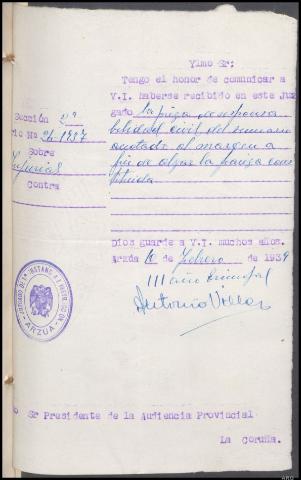 Ylmo Sr;
Tengo el honor de comunicar a
V.I. haberse recibido en este Juz
gado la pieza de responsa
bilidad civil del sumario
anotado al margen a
fin de alzar la fianza cons
tituida
Sección 2ª
rio Nº 21-1937
Sobre
Injurias
Contra
Dios guarde a V.I. muchos años.
Arzúa 10 de Febrero de 1939
III año triunfal
Antonio Villar
JUZGADO DE 1ª INSTANCIA E INSTRUCCION
ARZUA
o Sr Presidente de la Audiencia Provincial
La Coruña.